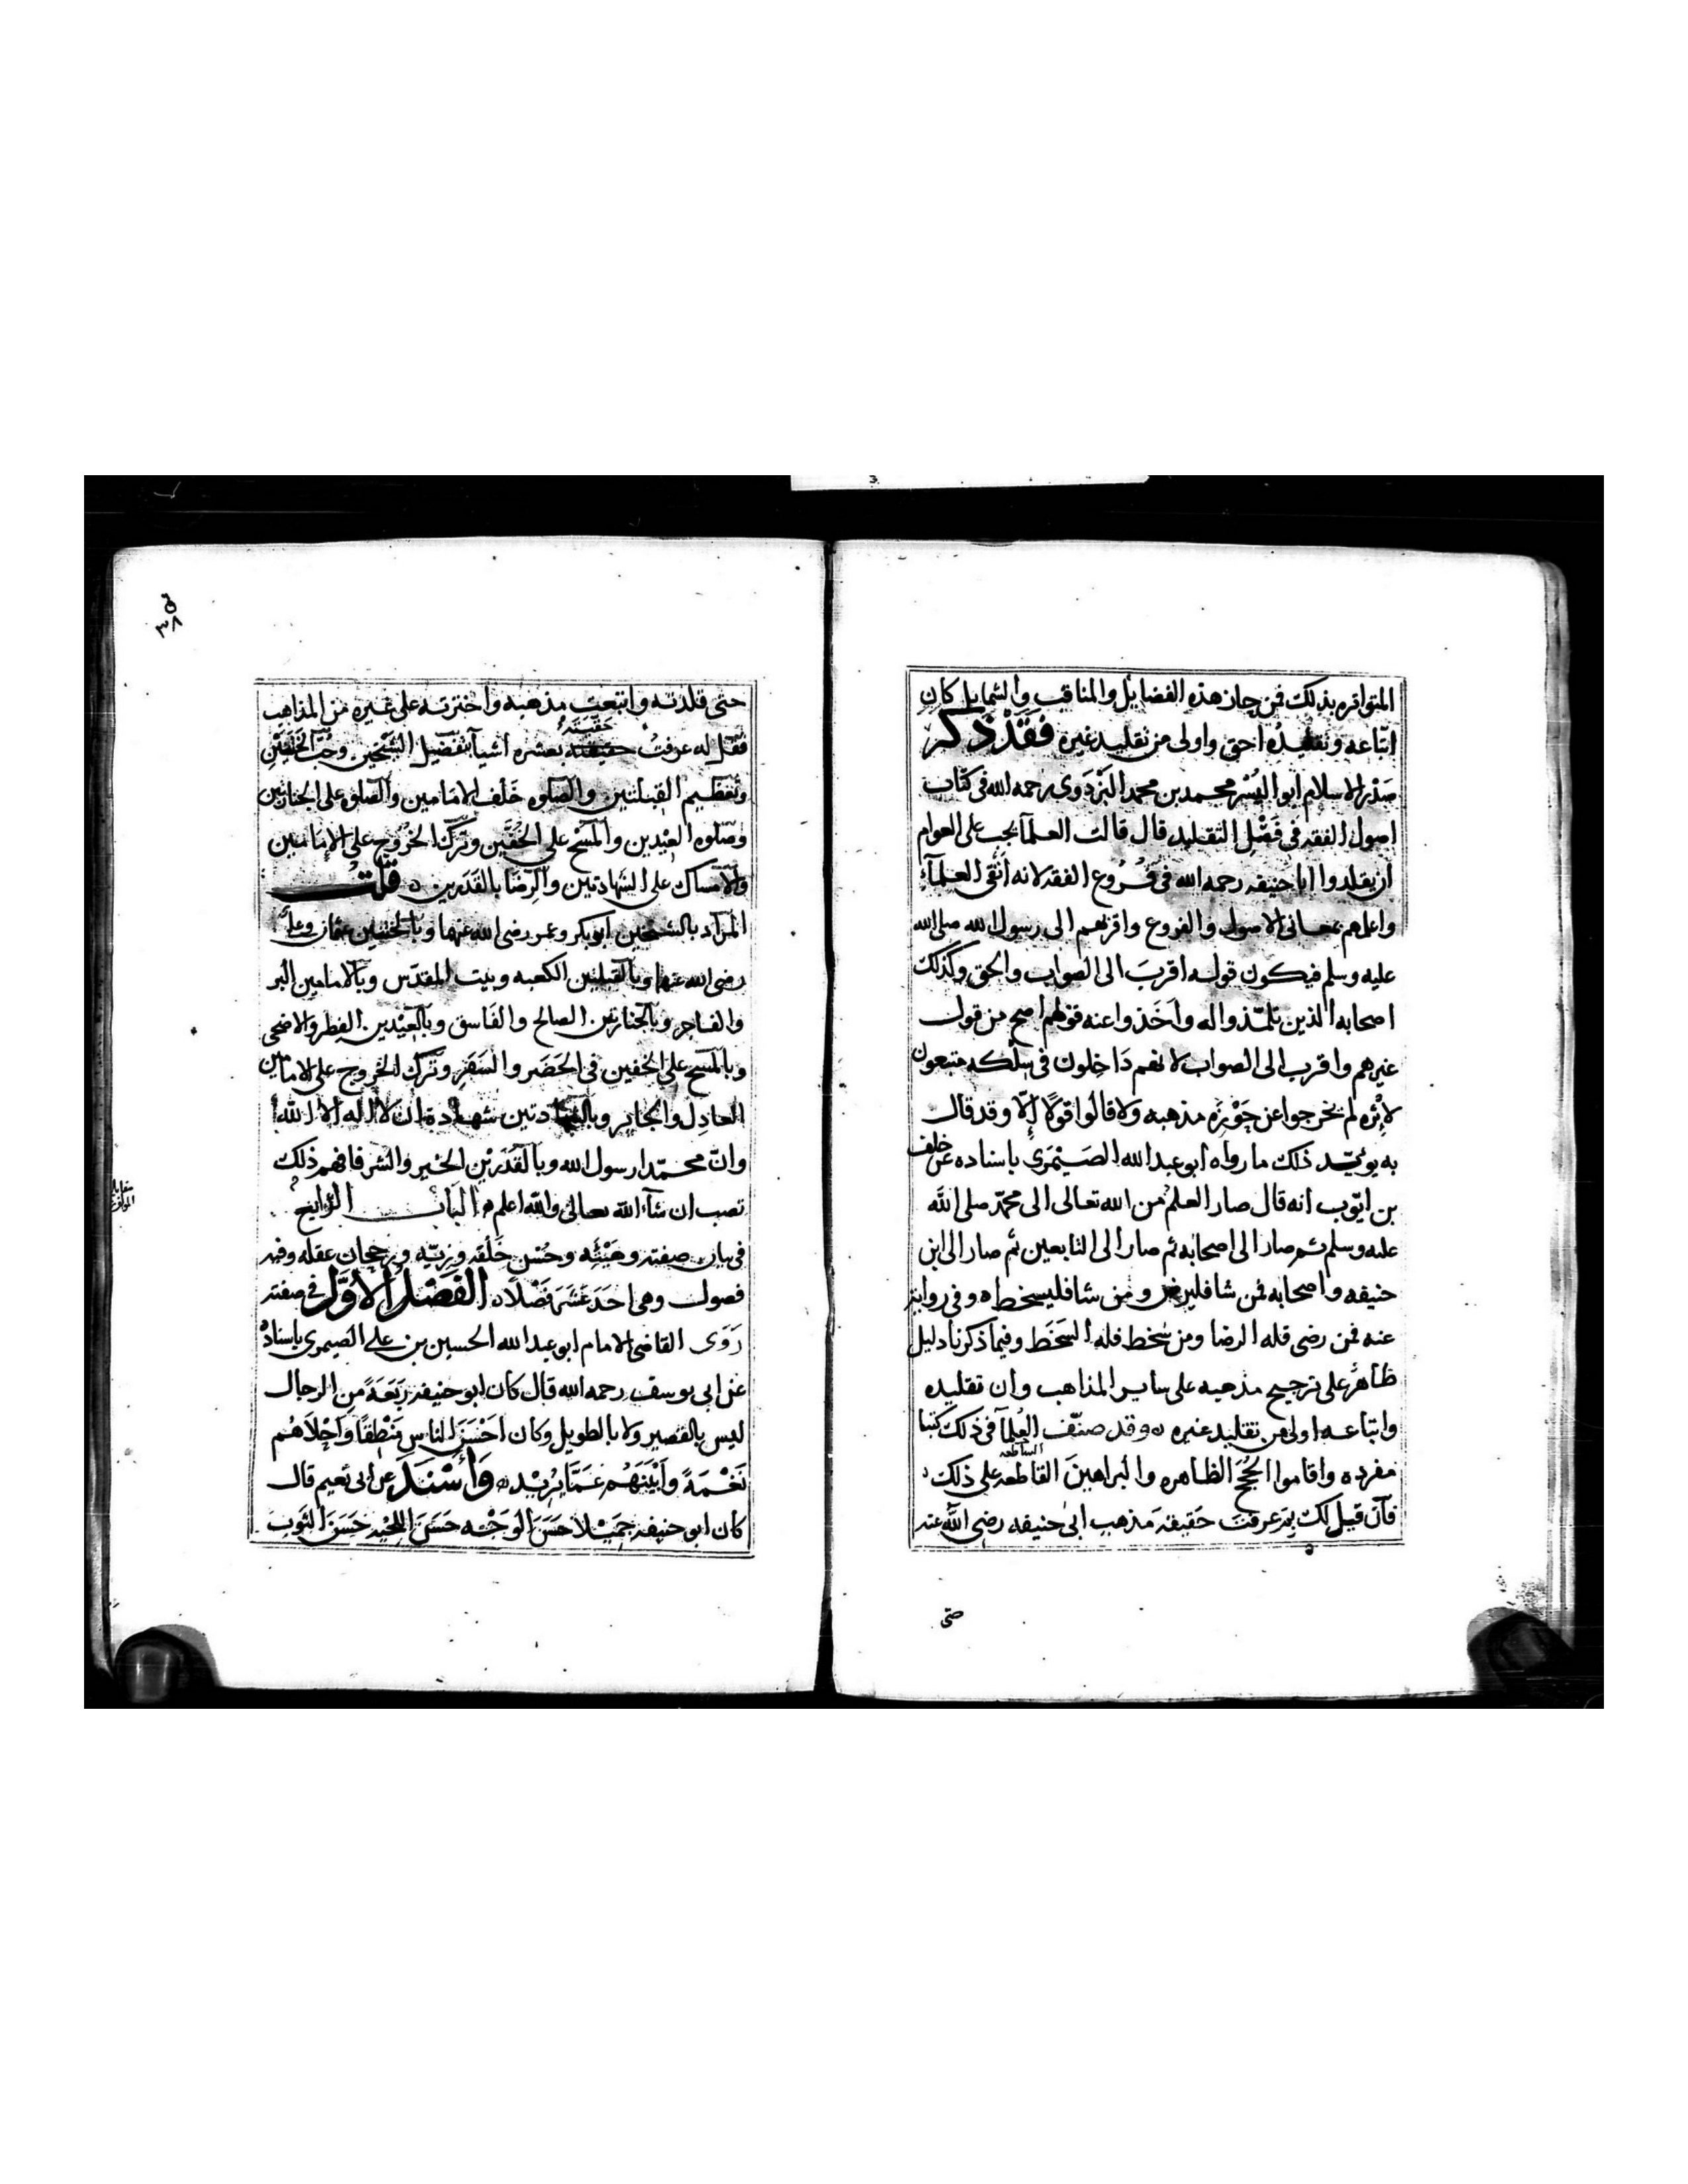 المتواتره بذلك فمن حاز هذه الفضايل والمناقب والشمايل كان
اتباعه وتقليده احق واولى من تقليد غيره فَقَدْ ذكر
صَدْر الاسلام ابو اليُسْر محمد بن محمد البَزْدَوى رحمه الله فى كتاب
اصول الفقه فى فَصْل التقليد قال قالت العلمآ يجب على العوام
ان يقلدوا ابا حنيفه رحمه الله فى فُرُوع الفقه لانه اتقى العلمآء
واعلمهم بمعانى الاصول والفروع واقربهم الى رسول الله صلى الله
عليه وسلم فيكون قوله اقربَ الى الصواب والحق وكذلك
اصحابه الذين تلمّذوا له واَخَذوا عنه قولهم اصح من قول
غيرهم واقرب الى الصواب لانهم دَاخِلون فى سِلْكه متبعون
لاِثره لم يخرجوا عن حَوْزه مذهبه ولا قالوا قولًا اِلّا وقد قال
به يوئيّد ذلك ما رواه ابو عبد الله الصَيْمَرى باسناده عن خلف
بن ايّوب انه قال صار العلم من الله تعالى الى محمّد صلى الله
عليه وسلم ثم صار الى اصحابه ثم صار الى التابعين ثم صار الى ابى
حنيفه واصحابه فمن شا فليرض ومن شا فليسخط ه وفى روايه
عنه فمن رضى فله الرضا ومن سخط فله السَخَط وفيما ذكرنا دليل
ظاهرٌ على ترجيح مذهبه على ساير المذاهب وان تقليده
واتباعه اولى من تقليد غيره ه وقد صنّف العُلمآ فى ذلك كتبا
الساطعه
مفرده واقاموا الحُجَج الظاهره والبراهينَ القاطعه على ذلك
فآن قيل لك بِمَ عرفتَ حقيقة مَذهب ابى حنيفه رضى الله عنه
حتى
ق
٣٨
حتى قلدته واتبعت مذهبه واخترته على غيره من المذاهب
حَقِيَّتَهُ
فقل له عرفتُ حقيقته بعشره اشيآ بتفضيل الشيخين وحُبّ الخَتَنَيْن
وتعظيم القِبلتين والصلوه خَلف الامَامين والصلوة على الجنازتين
وصَلوه العِيْدين والمَسْح على الخُفَّين وتَرْك الخُرُوج على الإمَامَيْن
والامْساك على الشهادتين والرِضَا بالقَدَرين ه قُلتُ
المرَاد بالشيخين ابو بكر وعمر رضى الله عنهما وبالختنين عثمان وعلى
رضى الله عنهما وبالقبلتين الكعبه وبيت المقدّس وبالامامين البر
والفاجر وبالجنازتين الصالح والفَاسق وبالعِيْدين الفِطر والاضحى
وبالمَسح على الخفين فى الحَضَر والسَفَر وتَرْك الخروج على الامامين
العادِل والجاير وبالشهادتين شهادة ان لا اله الا الله
وانّ محمّدا رسول الله وبالقَدَرَيْن الخير والشر فافهم ذلك
تصب ان شآء الله تعالى والله اعلم ه البَابُ الرَّابِعُ
فى بيان صفته وهَيْئَتِه وحُسْن خَلْقه وزِيِّه ورجحان عقله وفيه
فصول وهى احَدَ عَشَر فَصْلًا ه الفَصْلُ الأَوَّل فى صفته
رَوَى القاضى الامام ابو عبد الله الحسين بن على الصيمرى باسنادهُ
عن ابى يوسف رحمه الله قال كان ابو حنيفه رَبْعَةً من الرجال
ليس بالقصير ولا بالطويل وكان اَحْسَنَ الناس مَنْطِقًا وَاَحْلَاهُم
نَغْمَةً وَاَبْيَنَهُم عَمَّا يُرِيْد ه وَأَسْنَدَ عن ابى نُعيم قال
كان ابو حنيفه جَمِيْلًا حَسَنَ الوَجْه حَسَنَ اللِحْيه حَسَنَ الثَوب